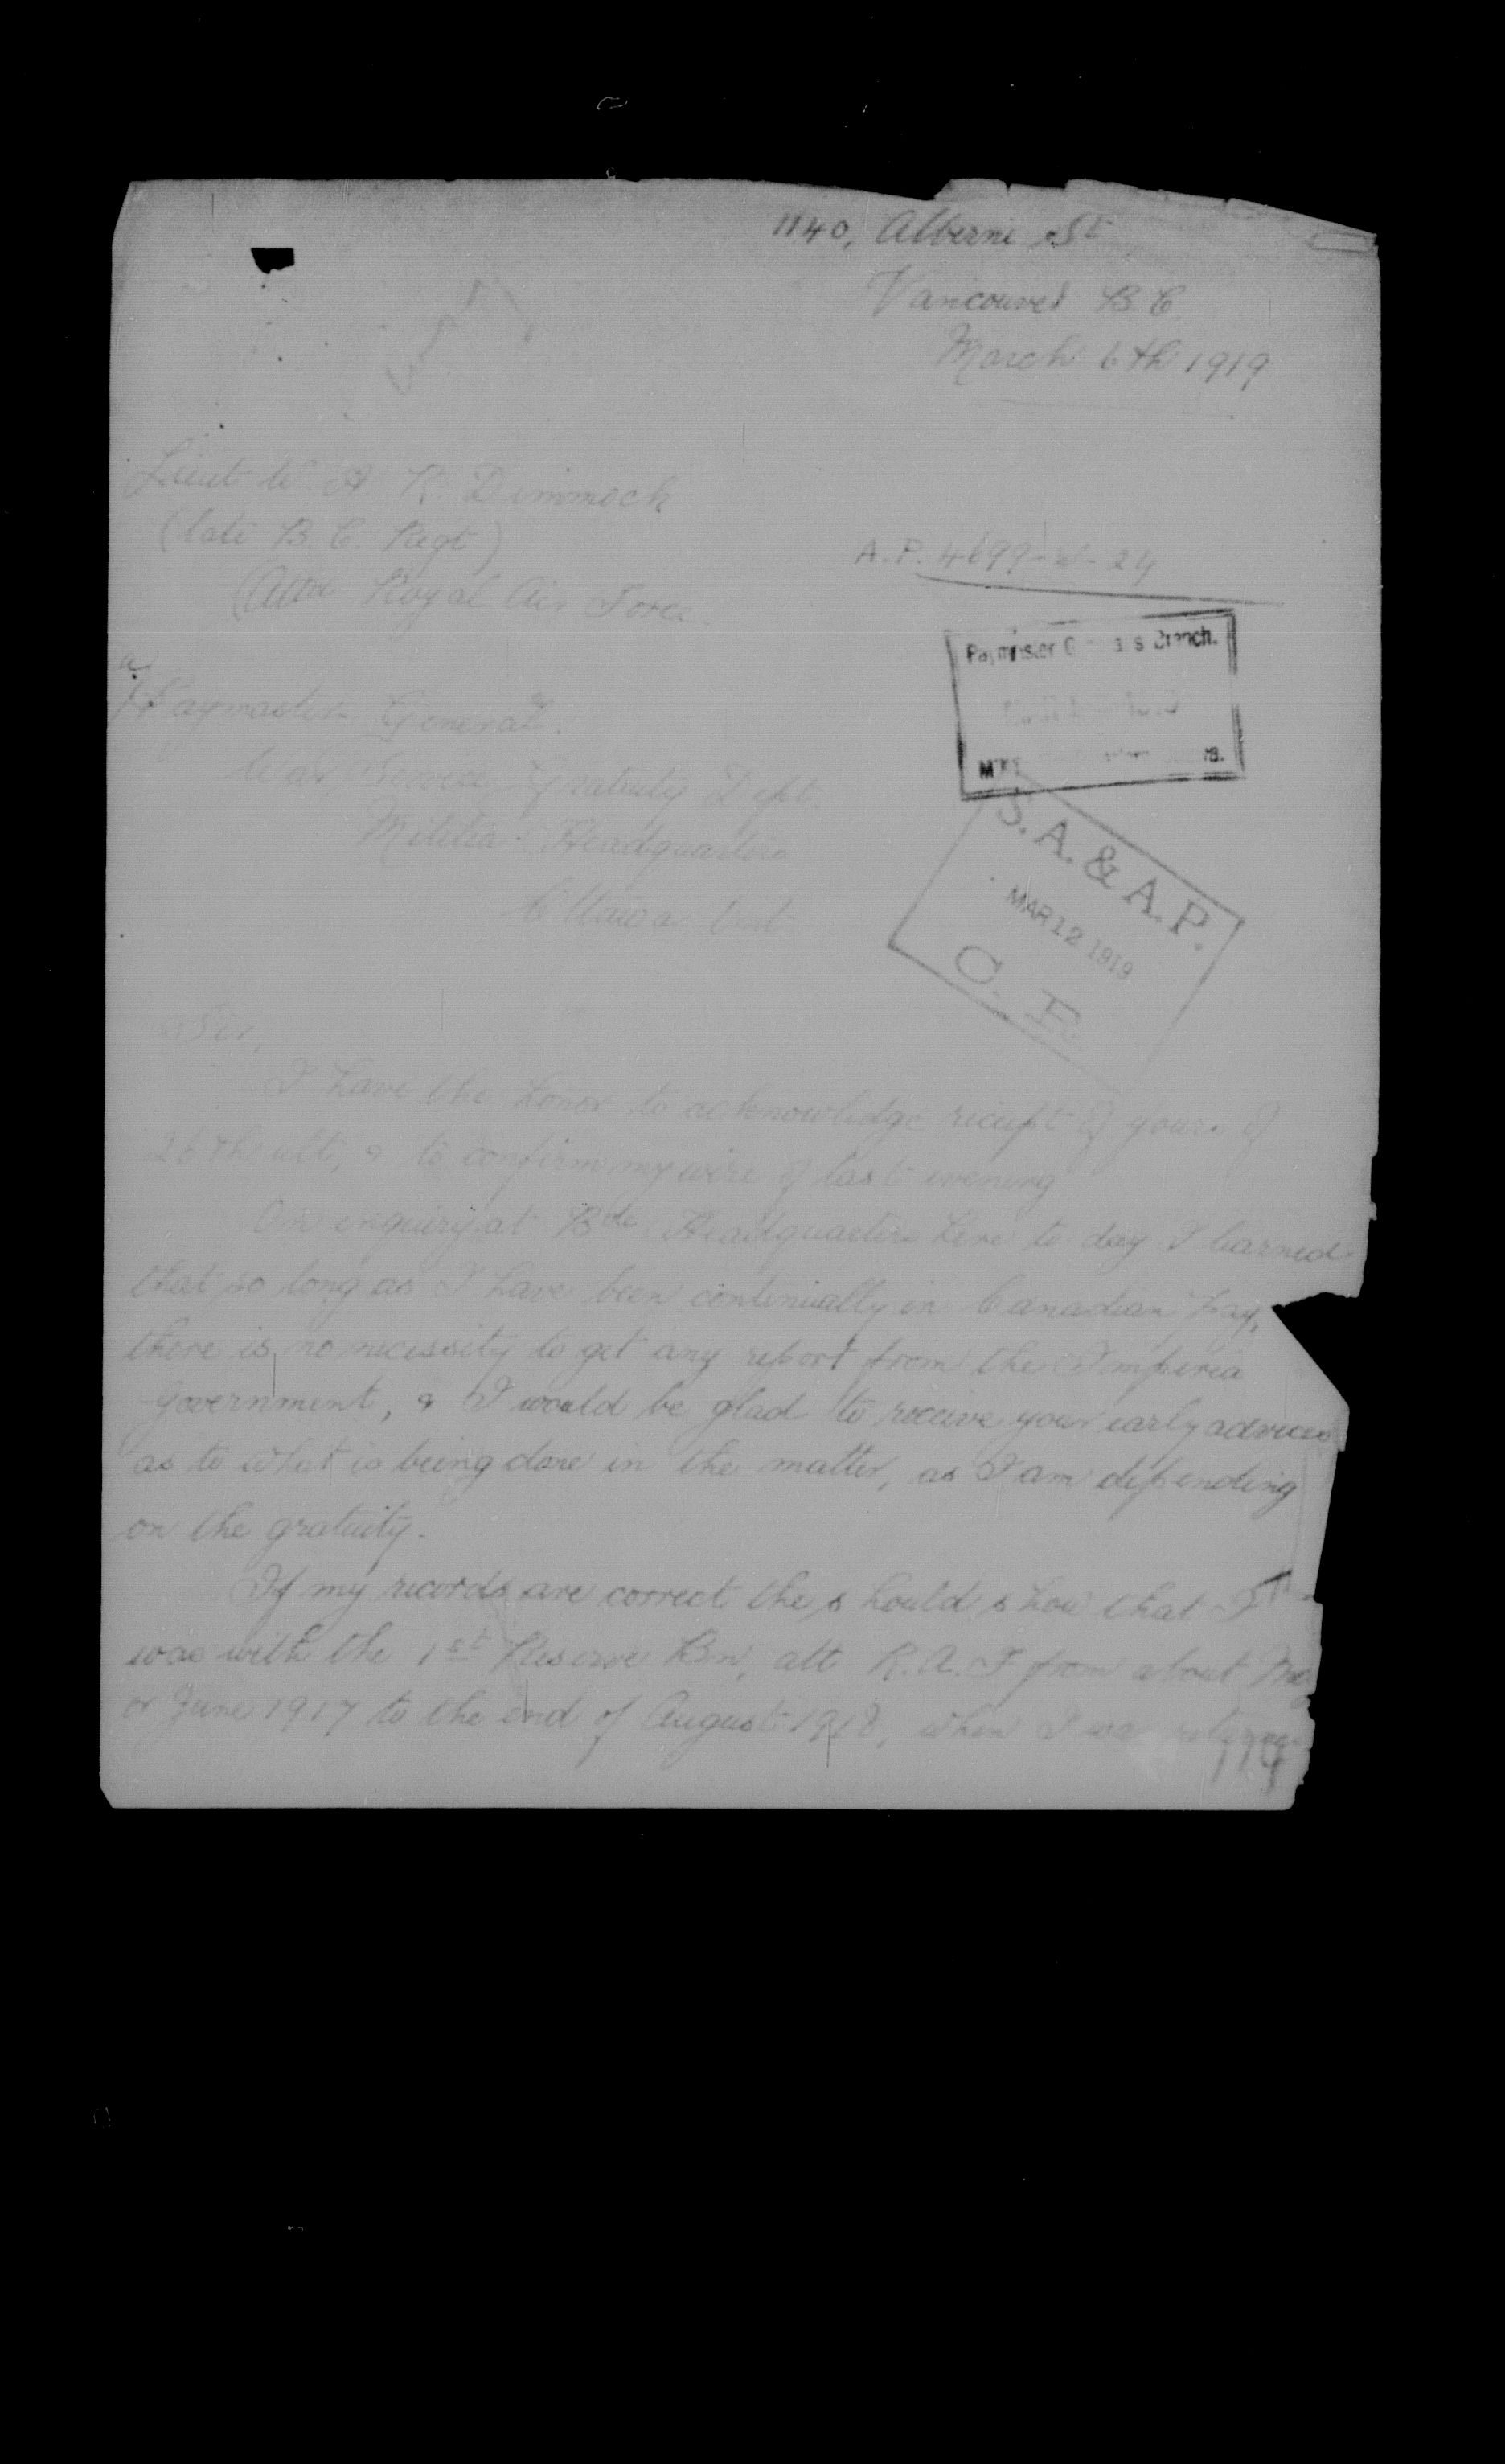 1140, Alberni St
Vancouver B.C.
March 6th 1919
Lieut W. A. R. Dimmock
(late B.C. Regt)
(Attn Royal Air Force.
A.P.
Paymaster General.
War Service Gratuity Dept.
Militia Headquarters
Ottawa Ont
Paymaster Branch.
S. A. & A. P.
MAR 12 1919
C. R.
Sir,
I have the honor to acknowledge receipt of yours of
26th ult, & to confirm my wire of last evening
On enquiry at Headquarters here to day I learned
that so long as I have been continually in Canadian pay,
there is no necessity to get any report from the Imperia
Government, & I would be glad to receive your early advices
as to what is being done in the matter, as I am depending
on the gratuity.
If my records are correct the should show that I
was with the 1st Reserve Bn, att R.A.F from about
or June 1917 to the end of August 1918, when I
119